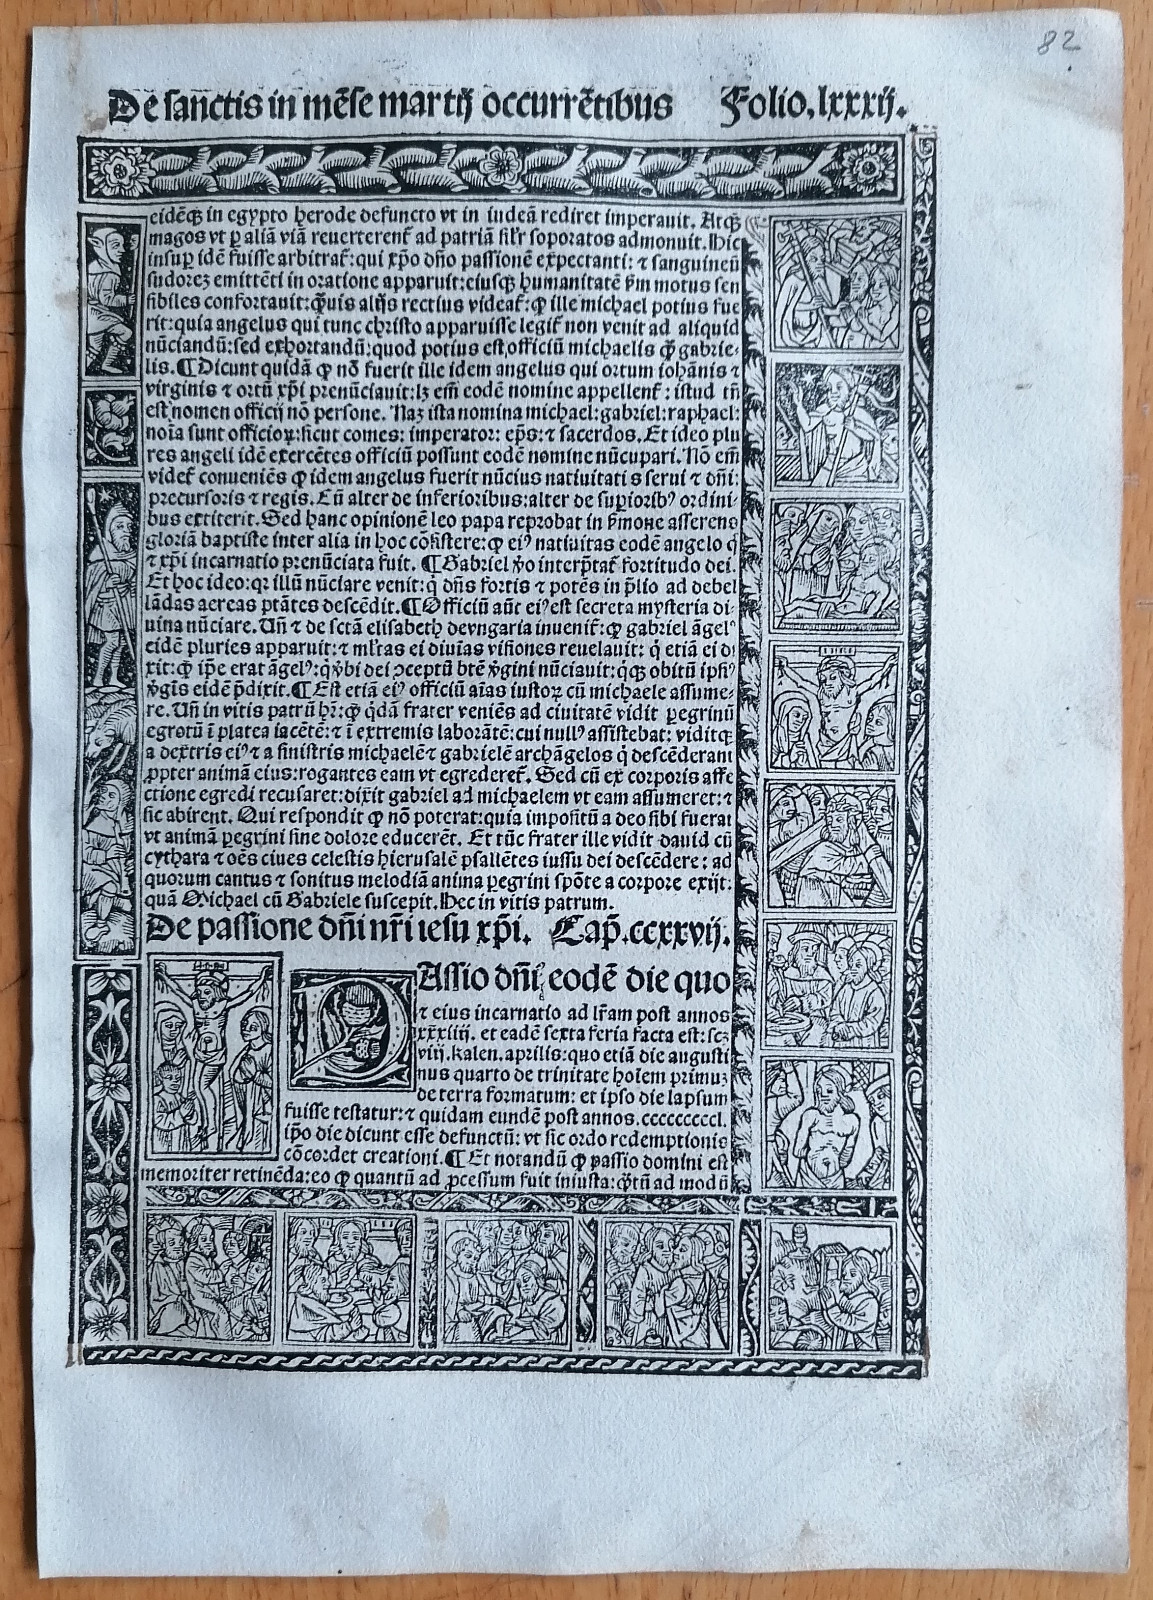 82
De sanctis in mēse martij occurrētibus Folio.lxxxij.
eidēqꝫ in egypto herode defuncto vt in iudeā rediret imperauit. Atqꝫ
magos vt ꝑ aliā viā reuerterent᷑ ad patriā sil'r soporatos admonuit. Hic
insuꝑ idē fuisse arbitrat᷑: qui xp̄o dn̄o passionē expectanti: ⁊ sanguineū
sudoreꝫ emittēti in oratione apparuit: eiusqꝫ humanitatē ꝑm motus sen
sibiles confortauit: q̄uis alijs rectius videat᷑: ꝙ ille michael potius fue
rit: quia angelus qui tunc christo apparuisse legit᷑ non venit ad aliquid
nūciandū: sed exhortandū: quod potius est officiū michaelis q̄ꝫ gabrie-
lis. ¶ Dicunt quidā ꝙ nō fuerit ille idem angelus qui ortum iohānis ⁊
virginis ⁊ ortū xp̄i prenūciauit: lꝫ em̄ eodē nomine appellent᷑: istud tn̄
est nomen officij nō persone. Naꝫ ista nomina michael: gabriel: raphael:
noīa sunt officioꝝ: sicut comes: imperator: ep̄s: ⁊ sacerdos. Et ideo plu
res angeli idē exercētes officiū possunt eodē nomine nūcupari. Nō em̄
videt᷑ conueniēs ꝙ idem angelus fuerit nūcius natiuitatis serui ⁊ dn̄i:
precursoris ⁊ regis. Cū alter de inferioribus: alter de suꝑioribꝰ ordini-
bus extiterit. Sed hanc opinionē leo papa reprobat in ẜmone asserens
gloriā baptiste inter alia in hoc cōsistere: ꝙ eiꝰ natiuitas eodē angelo q̇
⁊ xp̄i incarnatio prenūciata fuit. ¶ Gabriel v̄o interp̄tat᷑ fortitudo dei.
Et hoc ideo: qꝛ illū nūciare venit: q̇ dn̄s fortis ⁊ potēs in p̄lio ad debel
lādas aereas ptātes descēdit. ¶ Officiū aūt eiꝰ est secreta mysteria di-
uina nūciare. Un̄ ⁊ de sctā elisabeth de vngaria inuenit᷑: ꝙ gabriel āgelꝰ
eidē pluries apparuit: ⁊ ml'tas ei diuias visiones reuelauit: q̇ etiā ei di
xit: ꝙ ip̄e erat āgelꝰ: q̇ v̄bi dei ꝯceptū btē v̄gini nūciauit: q̇qꝫ obitū ipsiꝰ
v̄gīs eidē p̄dixit. ¶ Est etiā eiꝰ officiū aīas iustoꝝ cū michaele assume-
re. Un̄ in vitis patrū hr̄: ꝙ q̇dā frater veniēs ad ciuitatē vidit ꝑegrinū
egrotū ī platea iacētē: ⁊ ī extremis laborātē: cui nullꝰ assistebat: viditqꝫ
a dextris eiꝰ ⁊ a sinistris michaelē ⁊ gabrielē archāgelos q̇ descēderant
ꝓpter animā eius: rogantes eam vt egrederet᷑. Sed cū ex corporis affe
ctione egredi recusaret: dixit gabriel ad michaelem vt eam assumeret: ⁊
sic abirent. Qui respondit ꝙ nō poterat: quia impositū a deo sibi fuerat
vt animā ꝑegrini sine dolore educerēt. Et tūc frater ille vidit dauid cū
cythara ⁊ oēs ciues celestis hierusalē psallētes iussu dei descēdere: ad
quorum cantus ⁊ sonitus melodiā anima ꝑegrini spōte a corpore exijt:
quā Michael cū Gabriele suscepit. Hec in vitis patrum.
De passione dn̄i nr̄i iesu xp̄i. Cap̄.ccxxvij.
PAssio dn̄i eodē die quo
⁊ eius incarnatio ad lr̄am post annos
xxxiiij. et eadē sexta feria facta est: scꝫ
viij. kalen. aprilis: quo etiā die augusti
nus quarto de trinitate hoīem primuꝫ
de terra formatum: et ipso die lapsum
fuisse testatur: ⁊ quidam eundē post annos. cccccccccl.
ip̄o die dicunt esse defunctū: vt sic ordo redemptionis
cōcordet creationi. ¶ Et notandū ꝙ passio domini est
memoriter retinēda: eo ꝙ quantū ad ꝓcessum fuit iniusta: q̄tū ad modū